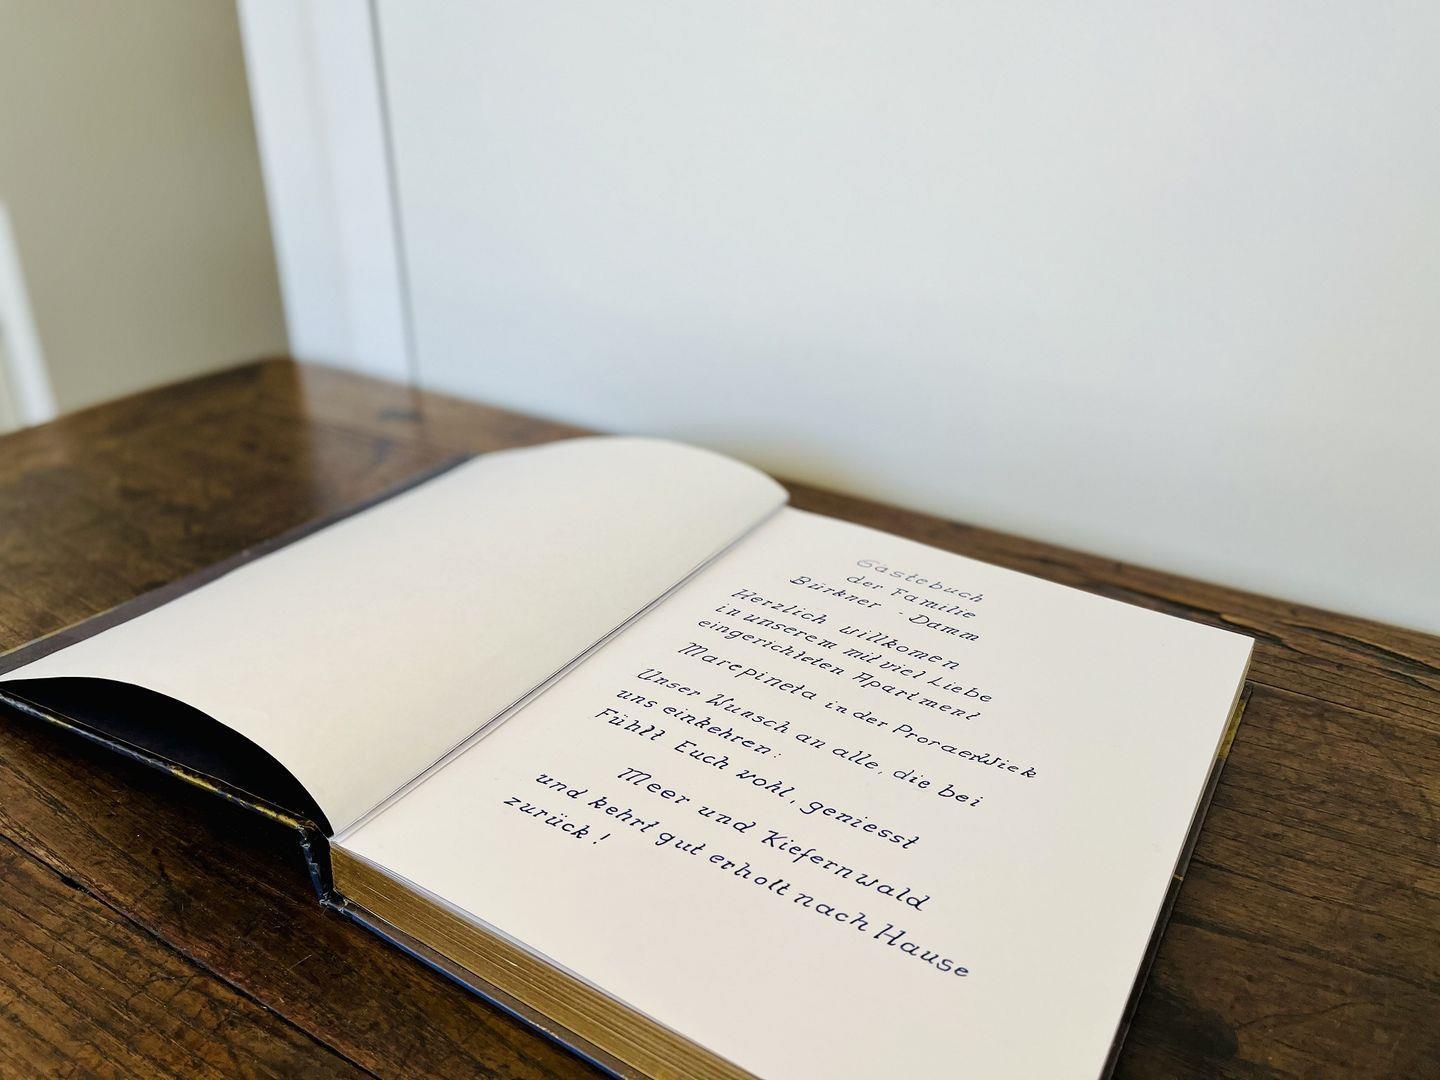 Gästebuch
der Familie
Bürkner - Damm
Herzlich willkomen
in unserem mit viel Liebe
eingerichteten Apartment
Marepineta in der Proraer Wiek
Unser Wunsch an alle, die bei
uns einkehren:
Fühlt Euch wohl, geniesst
Meer und Kiefernwald
und kehrt gut erholt nach Hause
zurück!